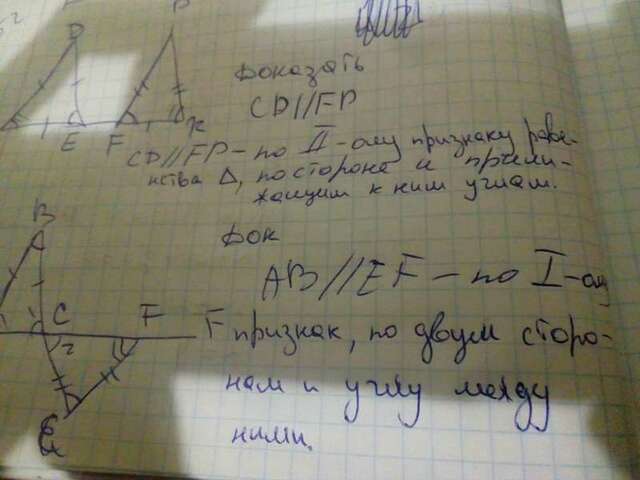 D
E F K
Доказать
CD//FP
CD//FP - по II-ому признаку раве-
нства Δ, по стороне и приле-
жащим к ним углам.
B
Док
AB//EF - по I-ому
C F F признак, по двум сторо-
2
нам и углу между
ними.